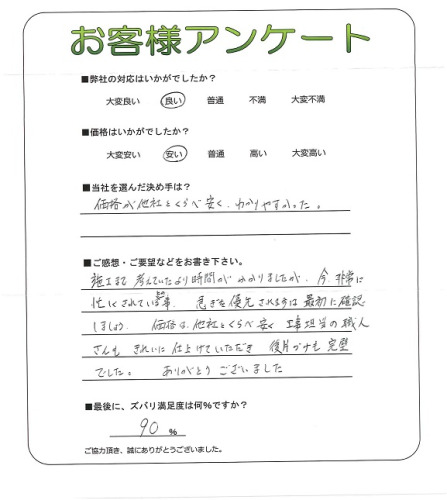 お客様アンケート
■弊社の対応はいかがでしたか？
大変良い 良い 普通 不満 大変不満
■価格はいかがでしたか？
大変安い 安い 普通 高い 大変高い
■当社を選んだ決め手は？
価格が他社とくらべ安く、わかりやすかった。
■ご感想・ご要望などをお書き下さい。
施工まで考えていたより時間がかかりましたが、今、非常に
忙しくされている事 急ぎを優先される方は最初に確認
しましょう 価格は、他社とくらべ安く 工事担当の職人
さんも きれいに仕上げていただき 後片づけも完璧
でした。 ありがとうございました
■最後に、ズバリ満足度は何％ですか？
90 %
ご協力頂き、誠にありがとうございました。